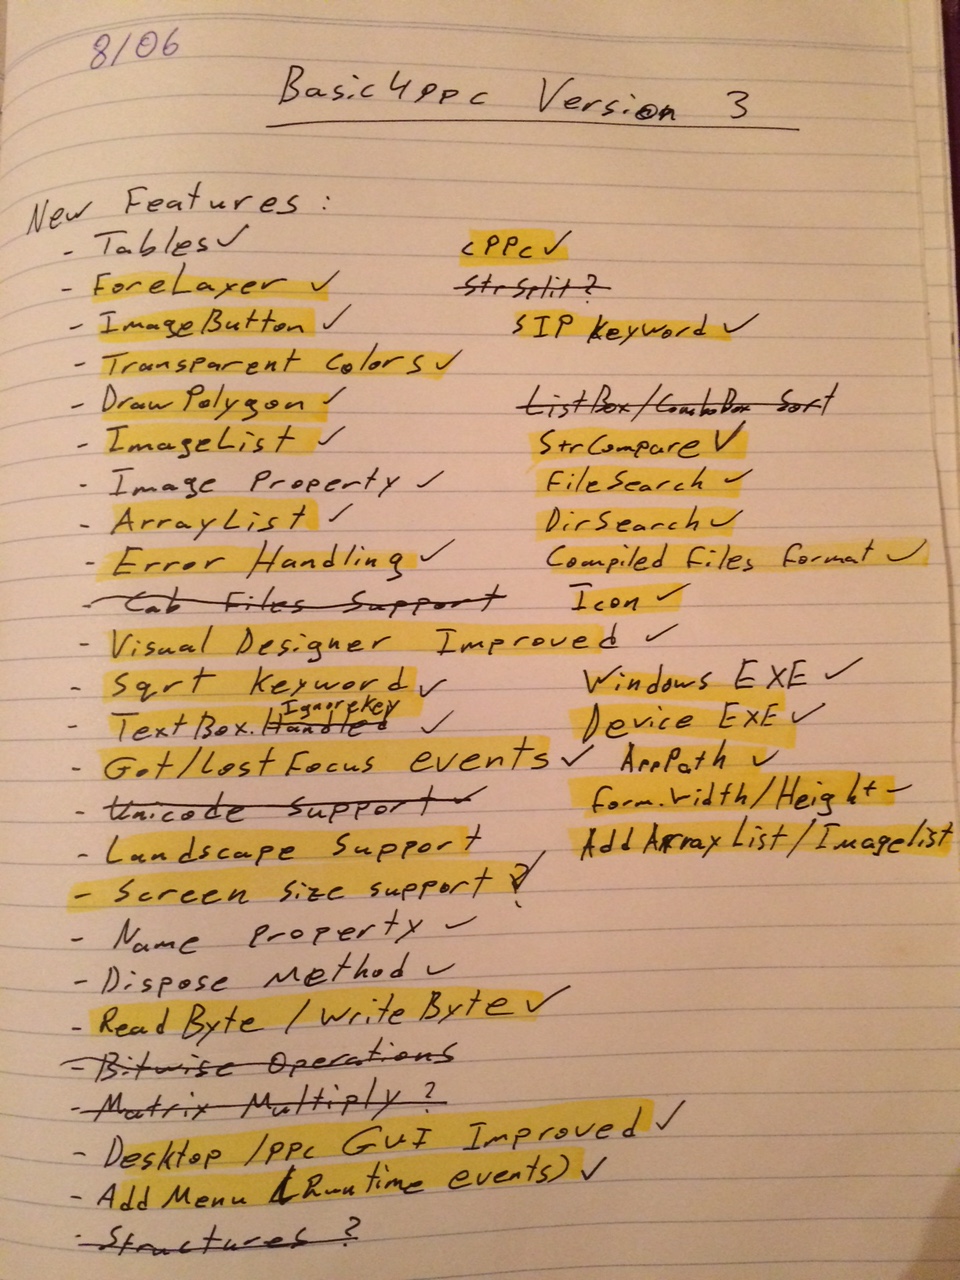 8/06
Basic4ppc Version 3
New Features:
- Tables ✓
- ForeLayer ✓
- ImageButton ✓
- Transparent Colors ✓
- DrawPolygon ✓
- ImageList ✓
- Image Property ✓
- ArrayList ✓
- Error Handling ✓
- Cab Files Support
- Visual Designer Improved ✓
- Sqrt keyword ✓
IgnoreKey
- TextBox.Handled ✓
- Got/Lost Focus events ✓
- Unicode Support ✓
- Landscape Support
- Screen size support ?
- Name property ✓
- Dispose Method ✓
- Read Byte / Write Byte ✓
- Bitwise Operations
- Matrix Multiply ?
- Desktop /ppc GUI Improved ✓
- Add Menu (Runtime events) ✓
- Structures ?
cPPc ✓
StrSplit ?
SIP keyword ✓
ListBox/ComboBox Sort
StrCompare ✓
FileSearch ✓
DirSearch ✓
Compiled files format ✓
Icon ✓
Windows EXE ✓
Device EXE ✓
AppPath ✓
form.width/Height ✓
Add ArrayList/Imagelist